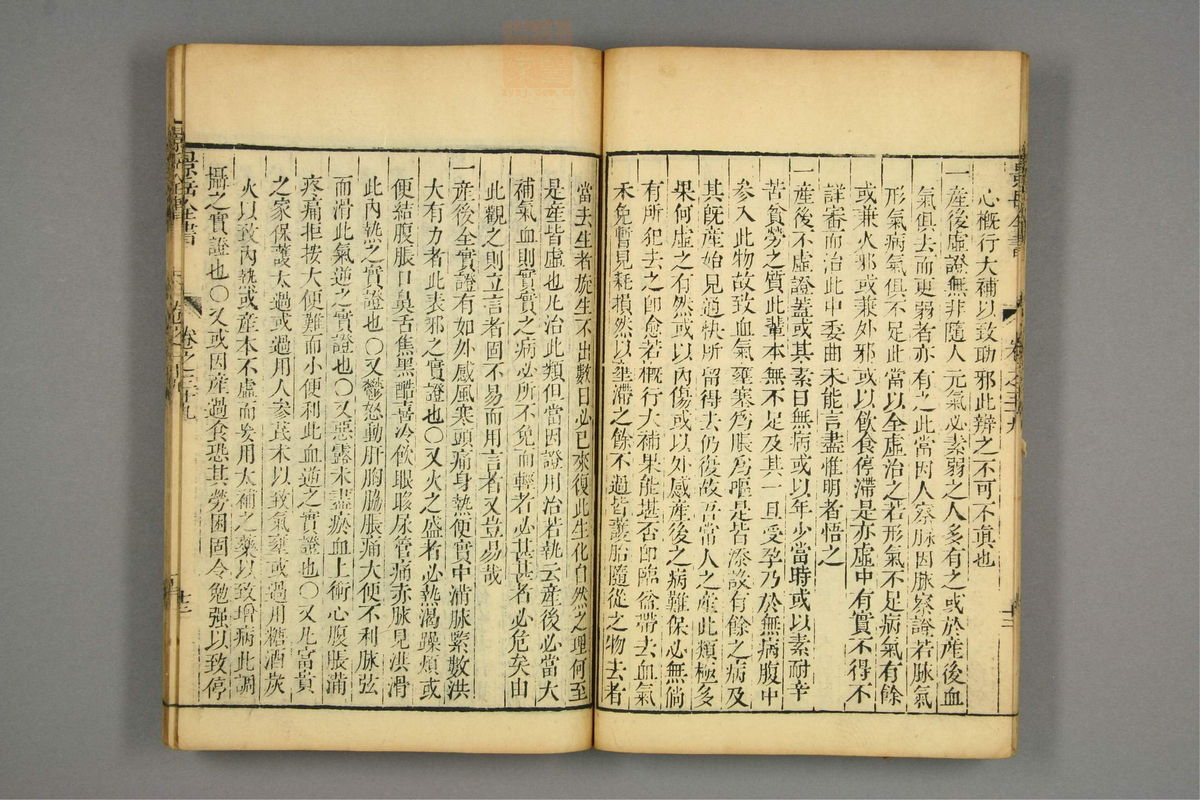 心概行大補以致助邪此辯之不可不真也
一産後虛證無非隨人元氣必素弱之人多有之或於産後血
氣俱去而更弱者亦有之此當因人察脉因脉察證若脉氣
形氣病氣俱不足此當以全虛治之若形氣不足病氣有餘
或兼火邪或兼外邪或以飲食停滯是亦虛中有實不得不
詳審而治此中委曲未能言盡惟明者悟之
一産後不虛證蓋或其素日無病或以年少當時或以素耐辛
苦貧勞之質此輩本無不足及其一旦受孕乃於無病腹中
參入此物故致血氣壅塞爲脹爲嘔是皆添設有餘之病及
其既産始見通快所留得去仍復故吾常人之産此類極多
果何虛之有然或以內傷或以外感産後之病難保必無倘
有所犯去之即愈若概行大補果能堪否即臨盆帶去血氣
未免暫見耗損然以壅滯之餘不過皆護胎隨從之物去者
當去生者旋生不出數日必已來復此生化自然之理何至
是産皆虛也凡治此類但當因證用治若執云産後必當大
補氣血則實實之病必所不免而輕者必甚甚者必危矣由
此觀之則立言者固不易而用言者又豈易哉
一産後全實證有如外感風寒頭痛身熱便實中滿脉緊數洪
大有力者此表邪之實證也○又火之盛者必熱渴躁煩或
便結腹脹口鼻舌焦黑酷喜冷飲眼眵尿管痛赤脉見洪滑
此內熱之實證也○又鬱怒動肝胸脇脹痛大便不利脉弦
而滑此氣逆之實證也○又惡露未盡瘀血上衝心腹脹滿
疼痛拒按大便難而小便利此血逆之實證也○又凡富貴
之家保護太過或過用人參芪术以致氣壅或過用糖酒炭
火以致內熱或産本不虛而妄用大補之藥以致增病此調
攝之實證也○又或因産過食恐其勞困固令勉强以致停
景岳全書
卷之三十九